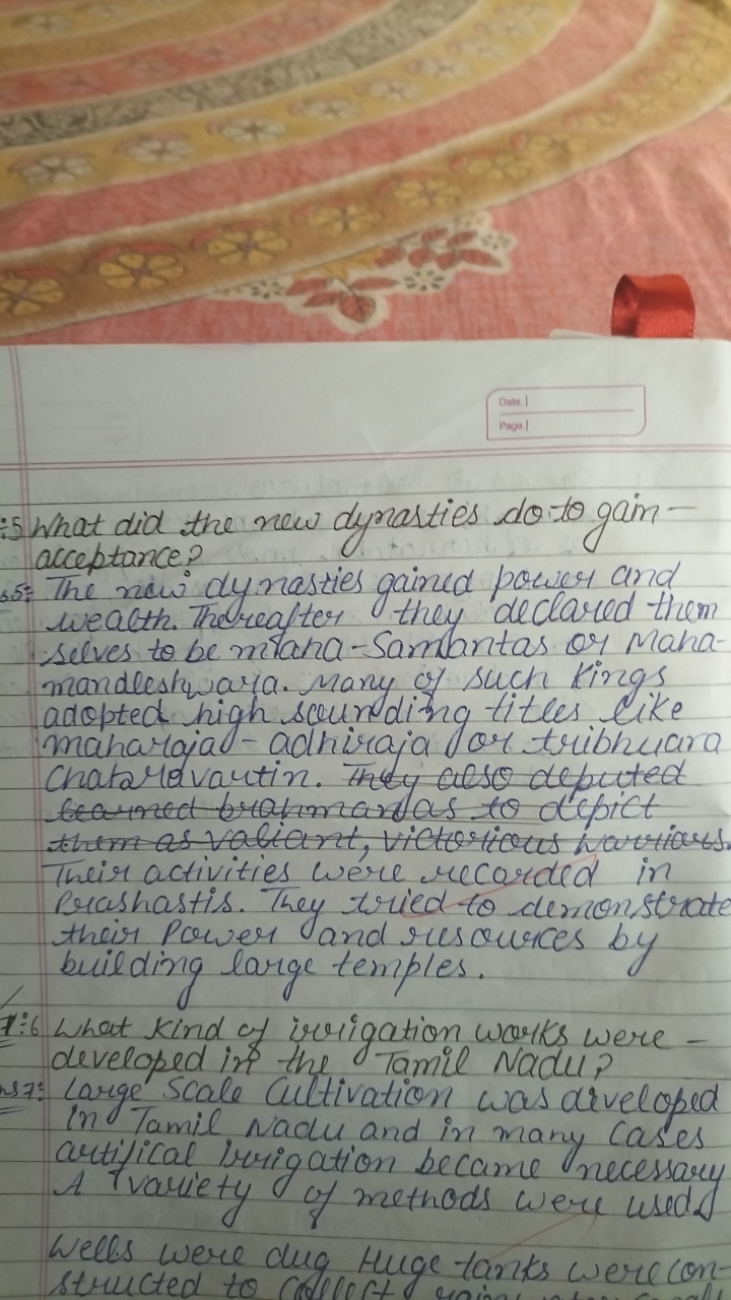 Date.
Page.
:5 What did the new dynasties do to gain -
acceptance?
s5: The new dynasties gained power and
wealth. Thereafter they declared them
selves to be maha-Samantas or Maha-
mandleshwara. Many of such kings
adopted high sounding titles like
maharaja - adhiraja or tribhuara
Chataravartin. They also deputed
learned brahmandas to depict
them as valiant, victorious warriors.
Their activities were recorded in
Prashastis. They tried to demonstrate
their Power and resources by
building large temples.
:6 What kind of irrigation works were -
developed in the Tamil Nadu?
ns7: Large Scale Cultivation was developed
in Tamil Nadu and in many Cases
artifical irrigation became necessary
A variety of methods were used.
Wells were dug Huge tanks were con-
structed to collect